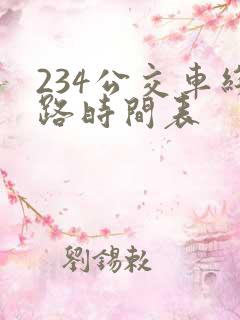 234公交車綫
路時間表
劉錫敕